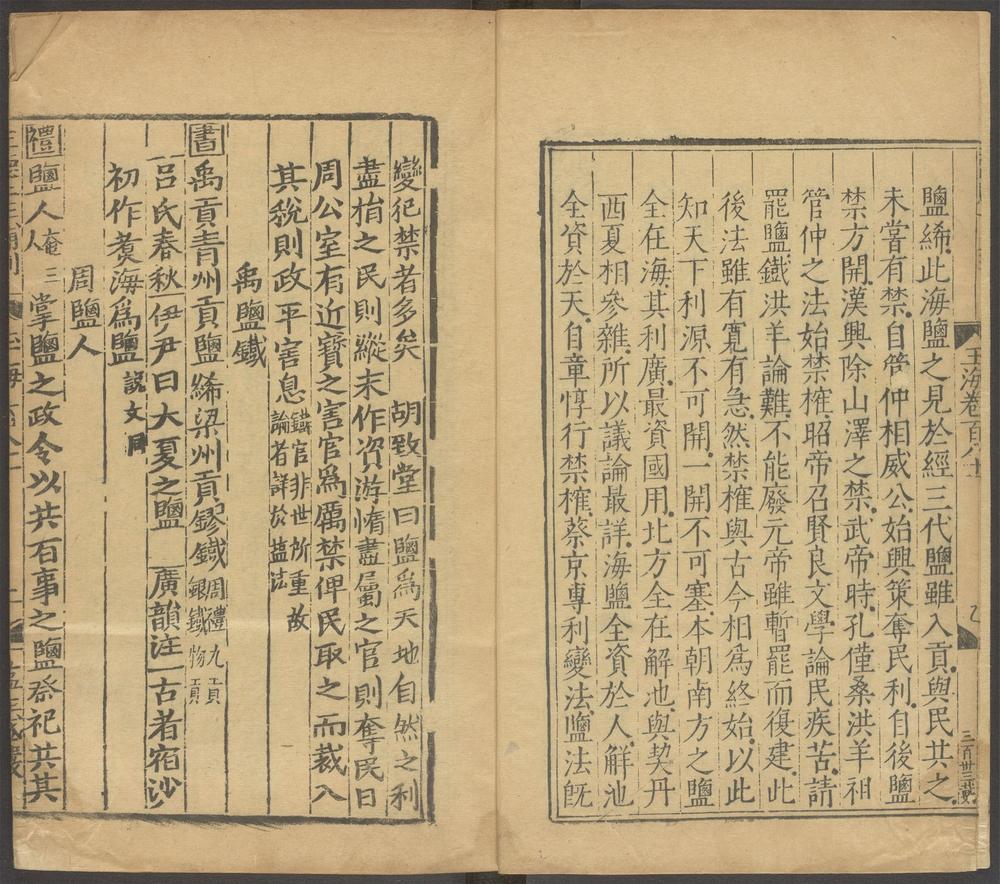 玉海卷一百八十一
三百卅三
鹽絺此海鹽之見於經三代鹽雖入貢與民共之
未嘗有禁自管仲相威公始興策奪民利自後鹽
禁方開漢興除山澤之禁武帝時孔僅桑洪羊祖
管仲之法始禁榷昭帝召賢良文學論民疾苦請
罷鹽鐵洪羊論難不能廢元帝雖暫罷而復建此
後法雖有寬有急然禁榷與古今相爲終始以此
知天下利源不可開一開不可塞本朝南方之鹽
全在海其利廣最資國用北方全在解池與契丹
西夏相參雜所以議論最詳海鹽全資於人解池
全資於天自童惇行禁榷蔡京專利變法鹽法旣
變犯禁者多矣　胡致堂曰鹽爲天地自然之利
盡捐之民則縱末作資游惰盡屬之官則奪民日
周公室有近寶之害官爲厲禁俾民取之而裁入
其稅則政平害息鐵官非世所重故論者詳於盐法
禹鹽鐵
書禹貢青州貢鹽絺梁州貢鏐鐵周禮九貢銀鐵物貢
呂氏春秋伊尹曰大夏之鹽　廣韻注古者宿沙
初作煑海爲鹽說文同
周鹽人
禮鹽人奄二人掌鹽之政令以共百事之鹽祭祀共其